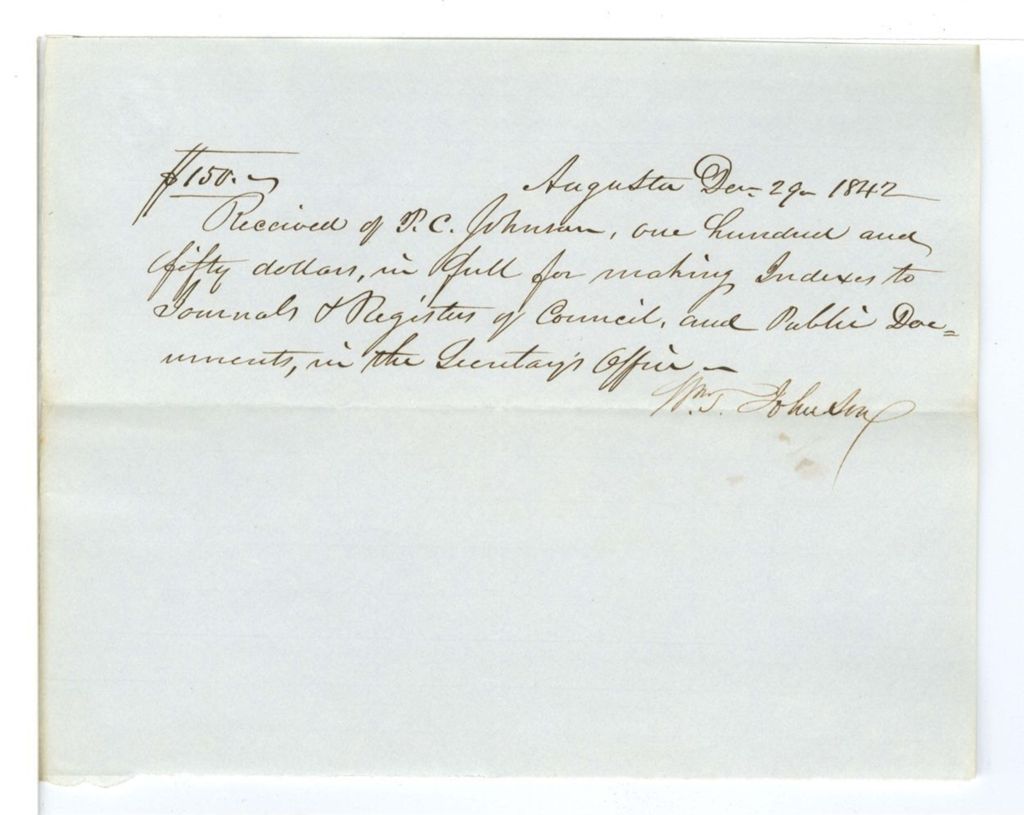 $150.- Augusta Dec- 29- 1842
Received of P. C. Johnson, one hundred and
fifty dollars, in full for making Indexes to
Journals & Registers of Council, and Public Doc=
uments, in the Secretary's Office -
Wm. J. Johnson